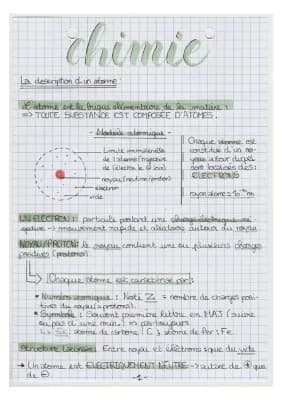 chimie
La description d'un atome :
L'atome est la brique élémentaire de la matière :
=> TOUTE SUBSTANCE EST COMPOSÉE D'ATOMES.
- Modèle atomique -
Limite immatérielle
de l'atome (trajectoire
de l'électron le + loin)
noyau (neutron/proton)
électron
vide
Chaque atome est
constitué d'un no-
yau autour duquel
sont localisés des
ELECTRONS
rayon atome = 10⁻¹⁰ m
UN ELECTRON : particule portant une charge électrique né-
gative -> mouvement rapide et aléatoire autour du noyau
NOYAU/PROTON : le noyau contient une ou plusieurs charges
positives (protons)
Chaque atome est caractérisé par :
• Numéro atomique : Noté Z = nombre de charges posi-
tives du noyau (= protons).
• Symbole : Souvent première lettre en MAJ (suivie
ou pas d'une min.) => pas toujours
Ex : atome de carbone : C ; atome de fer : Fe.
Structure lacunaire : Entre noyau et électrons : que du vide
→ Un atome est ELECTRIQUEMENT NEUTRE -> autant de ⊕ que
de ⊖
-1-